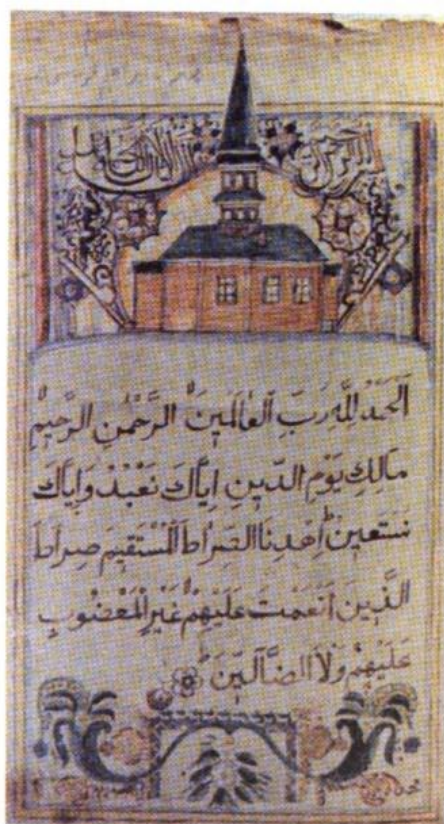 الحَمْدُ لِلّٰهِ رَبِّ العَالَمِينَ الرَّحْمٰنِ الرَّحِيمِ
مَالِكِ يَوْمِ الدِّينِ اِيَّاكَ نَعْبُدُ وَاِيَّاكَ
نَسْتَعِينُ اِهْدِنَا الصِّرَاطَ المُسْتَقِيمَ صِرَاطَ
الَّذِينَ اَنْعَمْتَ عَلَيْهِمْ غَيْرِ المَغْضُوبِ
عَلَيْهِمْ وَلَا الضَّالِّينَ